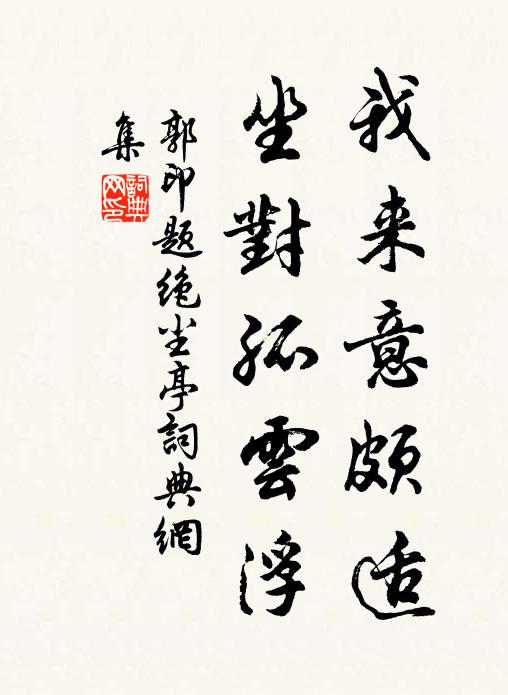 我来意頗适
坐對孤雲浮
郭印題絶尘亭詞典網
集
詞典网印